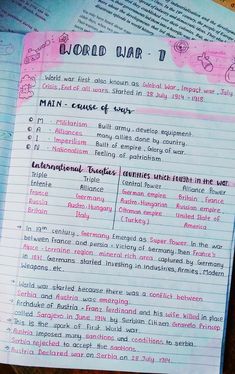 WORLD WAR - 1
World war first also known as Global War, Impact war, July
Crisis, End of all wars. Started in 28 July 1914 - 1918.
MAIN - cause of war
M : Militarism Built army, develope equipment.
A : Alliances many allies done by country.
I : Imperialism Built of empire, Glory of war.
N : Nationalism Feeling of patriotism.
International Treaties Countries which fought in the war
Triple Triple Central Power Alliance Power
Intente Alliance German empire Britain France
France Germany Austro-Hungarian Russian empire
Russia Austro-Hungary Ottoman empire United State of
Britain Italy (Turkey) America
In 19th century, Germany Emerged as Super Power. In the war
between france and persia - Victory of Germany, then France's
Alsace-Lorraine region, mineral rich area, captured by Germany
in 1871. Germans started Investing in industries, Armies, Modern
Weapons, etc.
World war started because there was a conflict between
Serbia and Austria was emerging.
Archduke of Austria - Franz ferdinand and his wife killed in place
called Sarajevo in June 1914 by Serbian Citizen Gravrelo Princep
This is the spark of First World War.
Austria imposed many sanctions and conditions to serbia.
Serbia rejected to accept the sanctions.
Austria Declared war on Serbia on 28 July 1914.